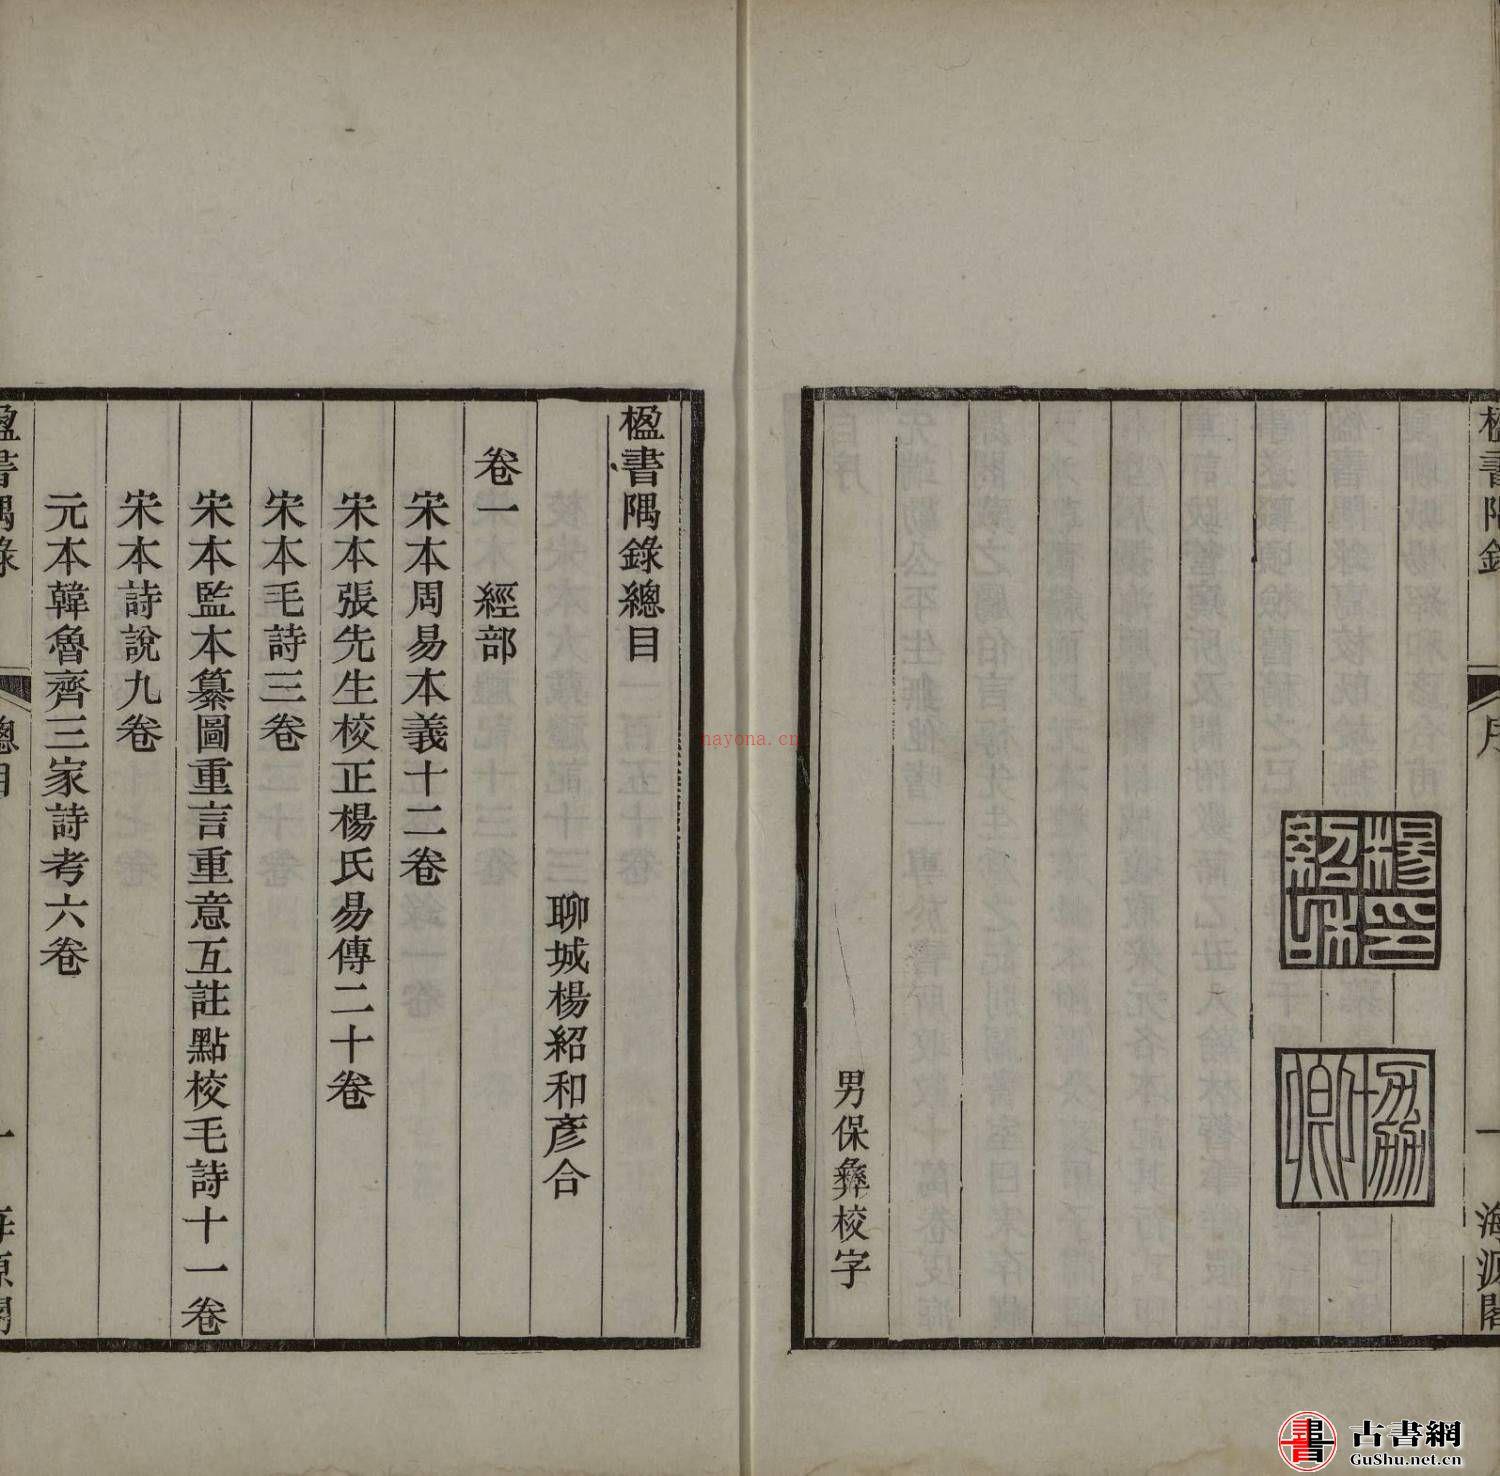 楹書隅錄
序
一
海源閣
楊紹和印
協卿
男保彝校字
楹書隅錄總目
聊城楊紹和彥合
卷一　經部
宋本周易本義十二卷
宋本張先生校正楊氏易傳二十卷
宋本毛詩三卷
宋本監本纂圖重言重意互註點校毛詩十一卷
宋本詩說九卷
元本韓魯齊三家詩考六卷
楹書隅錄
總目
一
海源閣
nayona.cn
古書網
GuShu.net.cn
書